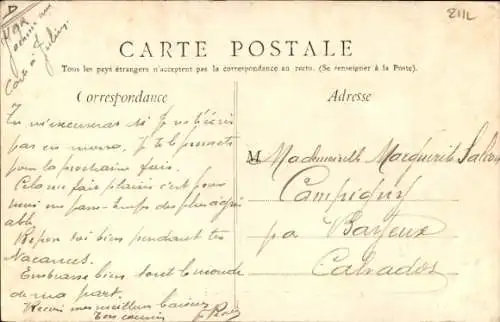 CARTE POSTALE
Tous les pays étrangers n'acceptent pas la correspondance au recto. (Se renseigner à la Poste).
Correspondance
Adresse
Tu m'excuseras si je ne t'écris
pas en mono. Je te le promets
pour la prochaine fois.
Cela me fait plaisir c'est pour
moi un passe-temps des plus agré
able
Repose toi bien pendant tes
Vacances.
Embrasse bien tout le monde
de ma part.
Reçois mes meilleurs baisers
Ton cousin
M Mademoiselle Marguerite
Campigny
par Bayeux
Calvados
21IL